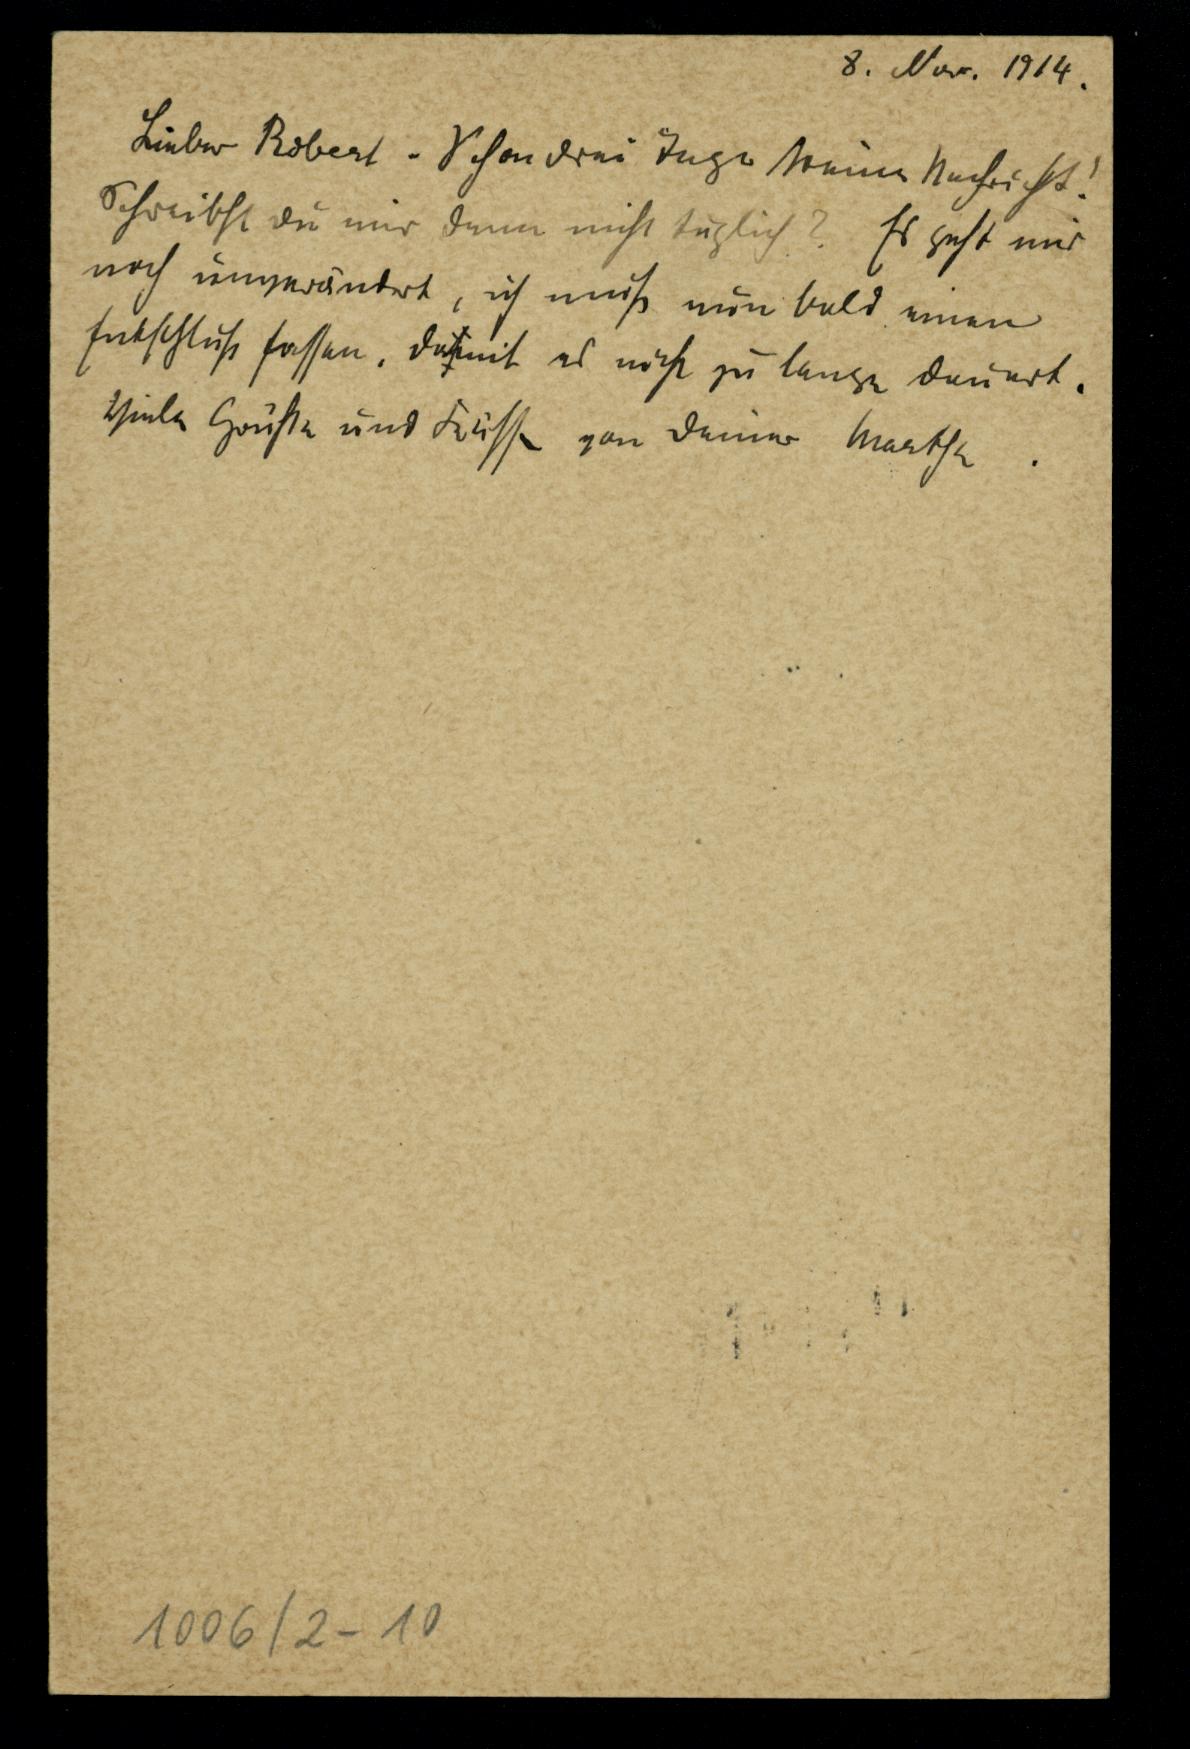 8. Nov. 1914.
Lieber Robert. Schon drei Tage keine Nachricht!
Schreibst du mir denn nicht täglich? Es geht mir
noch unverändert, ich muß nun bald einen
Entschluß fassen, damit es nicht zu lange dauert.
Viele Grüße und Küsse von Deiner Marthe.
1006/2-10